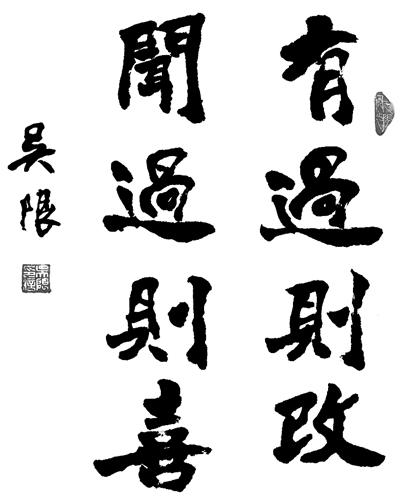 有過則改
聞過則喜
吴限